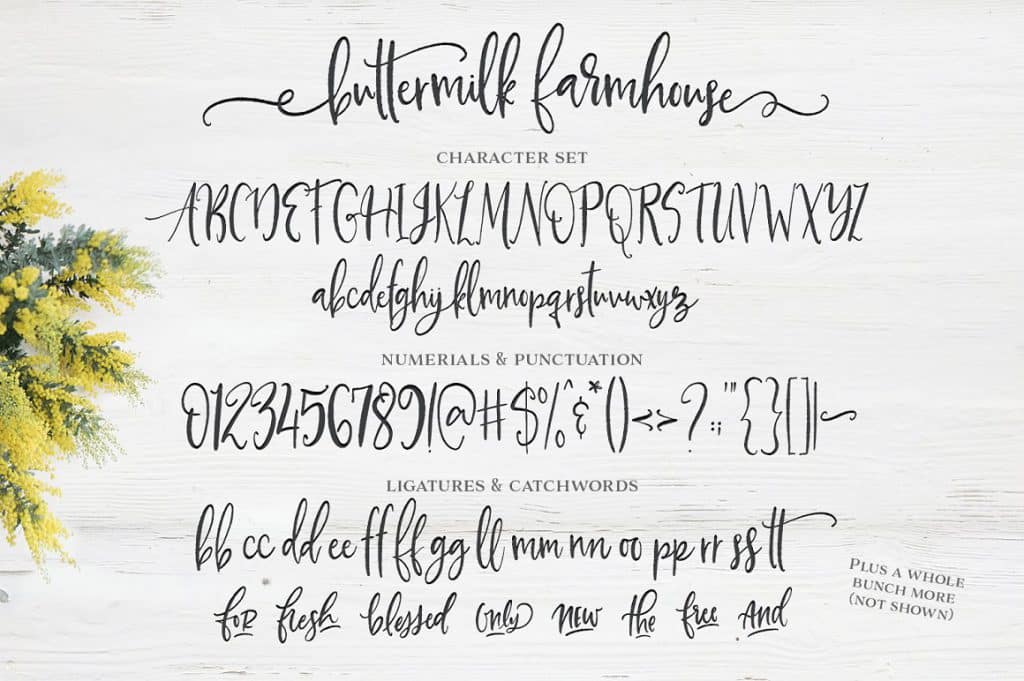 buttermilk farmhouse
CHARACTER SET
ABCDEFGHIJKLMNOPQRSTUVWXYZ
abcdefghijklmnopqrstuvwxyz
NUMERIALS & PUNCTUATION
0123456789!@#$%^&*()<>?:;'"{}[]|~
LIGATURES & CATCHWORDS
bb cc dd ee ff ff gg ll mm nn oo pp rr ss tt
for fresh blessed only new the free and
PLUS A WHOLE
BUNCH MORE
(NOT SHOWN)